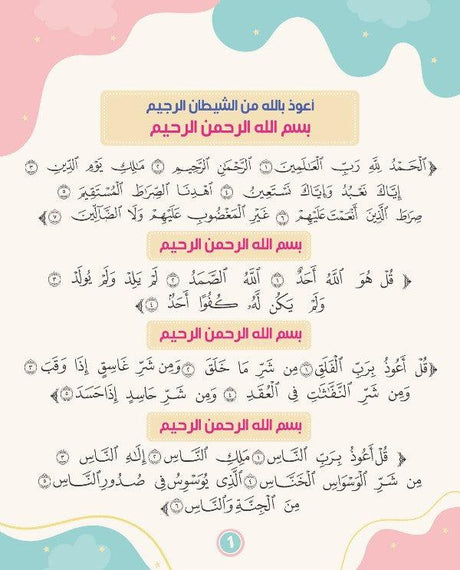 أعوذ بالله من الشيطان الرجيم
بسم الله الرحمن الرحيم
﴿ٱلْحَمْدُ لِلَّهِ رَبِّ ٱلْعَٰلَمِينَ ١ ٱلرَّحْمَٰنِ ٱلرَّحِيمِ ٢ مَٰلِكِ يَوْمِ ٱلدِّينِ ٣
إِيَّاكَ نَعْبُدُ وَإِيَّاكَ نَسْتَعِينُ ٤ ٱهْدِنَا ٱلصِّرَٰطَ ٱلْمُسْتَقِيمَ ٥
صِرَٰطَ ٱلَّذِينَ أَنْعَمْتَ عَلَيْهِمْ ٦ غَيْرِ ٱلْمَغْضُوبِ عَلَيْهِمْ وَلَا ٱلضَّآلِّينَ ٧﴾
بسم الله الرحمن الرحيم
﴿ قُلْ هُوَ ٱللَّهُ أَحَدٌ ١ ٱللَّهُ ٱلصَّمَدُ ٢ لَمْ يَلِدْ وَلَمْ يُولَدْ ٣
وَلَمْ يَكُن لَّهُۥ كُفُوًا أَحَدٌۢ ٤ ﴾
بسم الله الرحمن الرحيم
﴿قُلْ أَعُوذُ بِرَبِّ ٱلْفَلَقِ ١ مِن شَرِّ مَا خَلَقَ ٢ وَمِن شَرِّ غَاسِقٍ إِذَا وَقَبَ ٣
وَمِن شَرِّ ٱلنَّفَّٰثَٰتِ فِي ٱلْعُقَدِ ٤ وَمِن شَرِّ حَاسِدٍ إِذَا حَسَدَ ٥﴾
بسم الله الرحمن الرحيم
﴿ قُلْ أَعُوذُ بِرَبِّ ٱلنَّاسِ ١ مَلِكِ ٱلنَّاسِ ٢ إِلَٰهِ ٱلنَّاسِ ٣
مِن شَرِّ ٱلْوَسْوَاسِ ٱلْخَنَّاسِ ٤ ٱلَّذِي يُوَسْوِسُ فِي صُدُورِ ٱلنَّاسِ ٥
مِنَ ٱلْجِنَّةِ وَٱلنَّاسِ ٦﴾
1